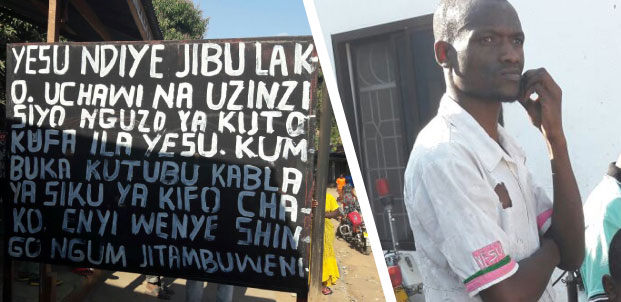 YESU NDIYE JIBU LAK-
O. UCHAWI NA UZINZI
SIYO NGUZO YA KUTO
KUFA ILA YESU. KUM
BUKA KUTUBU KABLA
YA SIKU YA KIFO CHA-
KO. ENYI WENYE SHIN
GO NGUM JITAMBUWENI
YESU